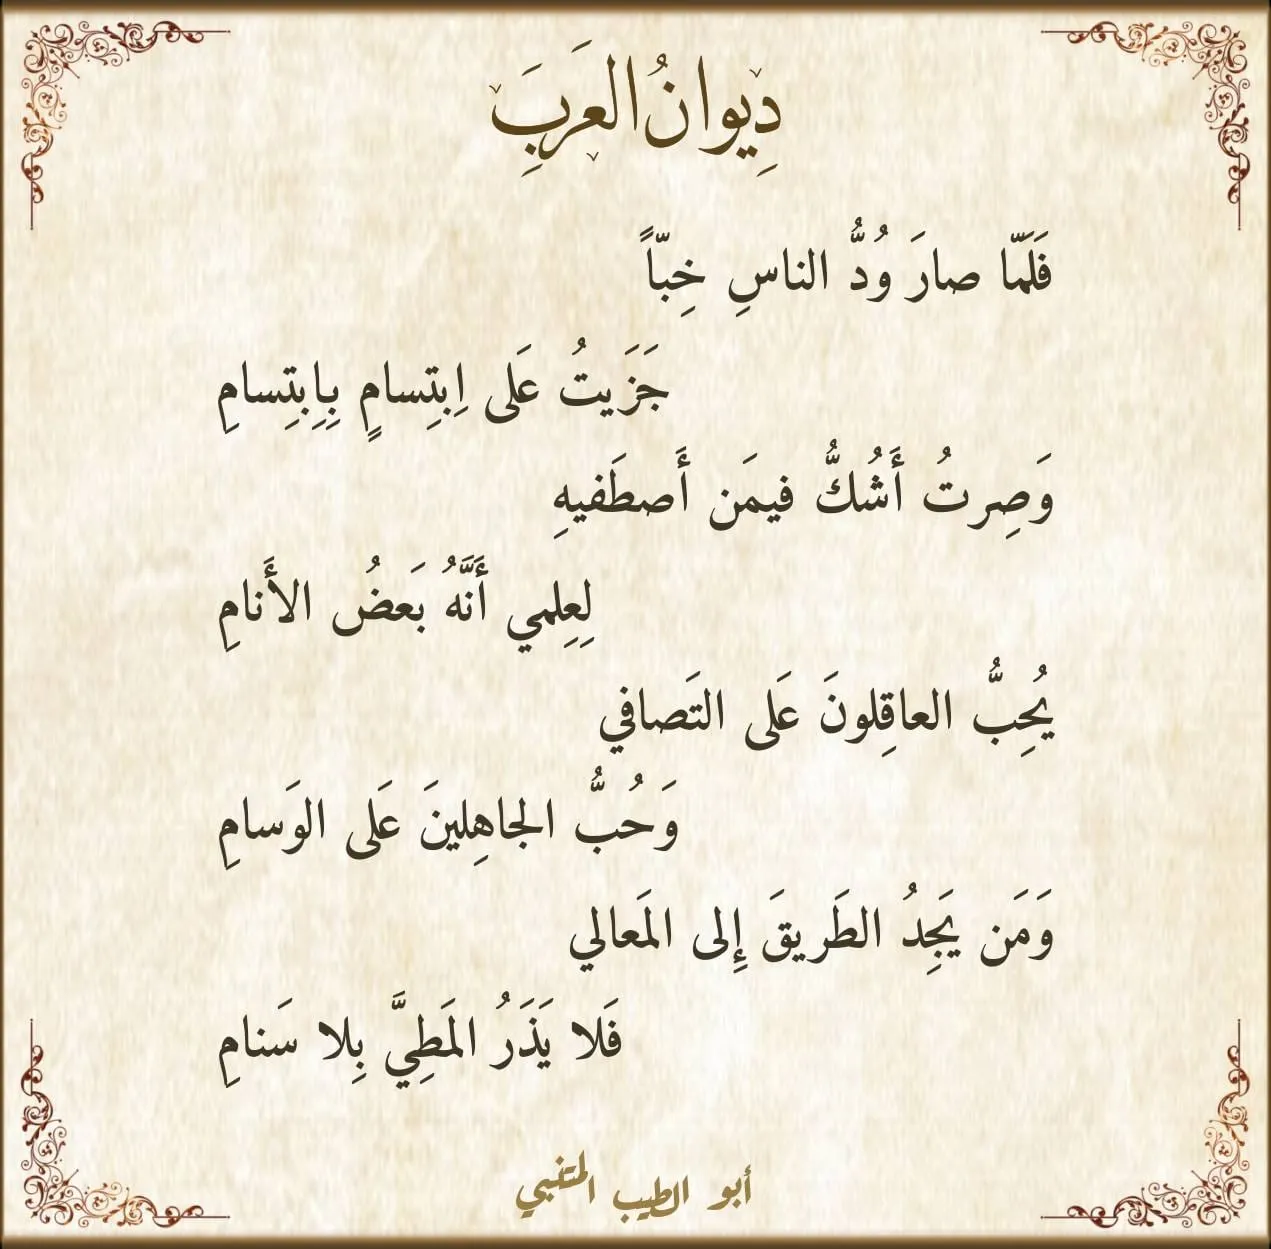 دِيوانُ العَربَِ
فَلَمّا صارَ وُدُّ الناسِ خِبّاً
جَزَيتُ عَلى اِبتِسامٍ بِاِبتِسامِ
وَصِرتُ أَشُكُّ فيمَن أَصطَفيهِ
لِعِلمي أَنَّهُ بَعضُ الأَنامِ
يُحِبُّ العاقِلونَ عَلى التَصافي
وَحُبُّ الجاهِلينَ عَلى الوَسامِ
وَمَن يَجِدُ الطَريقَ إِلى المَعالي
فَلا يَذَرُ المَطِيَّ بِلا سَنامِ
أبو الطيب المتنبي